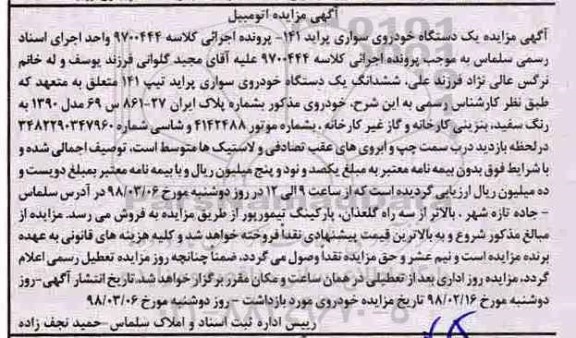 آگهی مزایده اتومبیل
آگهی مزایده یک دستگاه خودروی سواری پراید ۱۴۱- پرونده اجرائی کلاسه ۹۷۰۰۴۴۴ واحد اجرای اسناد
رسمی سلماس به موجب پرونده اجرائی کلاسه ۹۷۰۰۴۴۴ علیه آقای مجید گلوانی فرزند یوسف و له خانم
نرگس عالی نژاد فرزند علی، ششدانگ یک دستگاه خودروی سواری پراید تیپ ۱۴۱ متعلق به متعهد که
طبق نظر کارشناس رسمی به این شرح، خودروی مذکور بشماره پلاک ایران ۲۷-۸۶۱ س ۶۹ مدل ۱۳۹۰ به
رنگ سفید، بنزینی کارخانه و گاز غیر کارخانه . بشماره موتور ۴۱۴۲۴۸۸ و شاسی شماره ۳۴۸۲۲۹۰۳۴۷۹۶۰
درلحظه بازدید درب سمت چپ و ابروی های عقب تصادفی و لاستیک ها متوسط است، توصیف اجمالی شده و
با شرایط فوق بدون بیمه نامه معتبر به مبلغ یکصد و نود و پنج میلیون ریال و با بیمه نامه معتبر بمبلغ دویست و
ده میلیون ریال ارزیابی گردیده است که از ساعت ۹ الی ۱۲ در روز دوشنبه مورخ ۹۸/۰۳/۰۶ در آدرس سلماس
- جاده تازه شهر ، بالاتر از سه راه گلعذان، پارکینگ تیمورپور از طریق مزایده به فروش می رسد. مزایده از
مبالغ مذکور شروع و به بالاترین قیمت پیشنهادی نقداً فروخته خواهد شد و کلیه هزینه های قانونی به عهده
برنده مزایده است و نیم عشر و حق مزایده نقداً وصول می گردد، ضمناً چنانچه روز مزایده تعطیل رسمی اعلام
گردد، مزایده روز اداری بعد از تعطیلی در همان ساعت و مکان مقرر برگزار خواهد شد. تاریخ انتشار آگهی-روز
دوشنبه مورخ ۹۸/۰۲/۱۶ تاریخ مزایده خودروی مورد بازداشت - روز دوشنبه مورخ ۹۸/۰۳/۰۶
رییس اداره ثبت اسناد و املاک سلماس -حمید نجف زاده